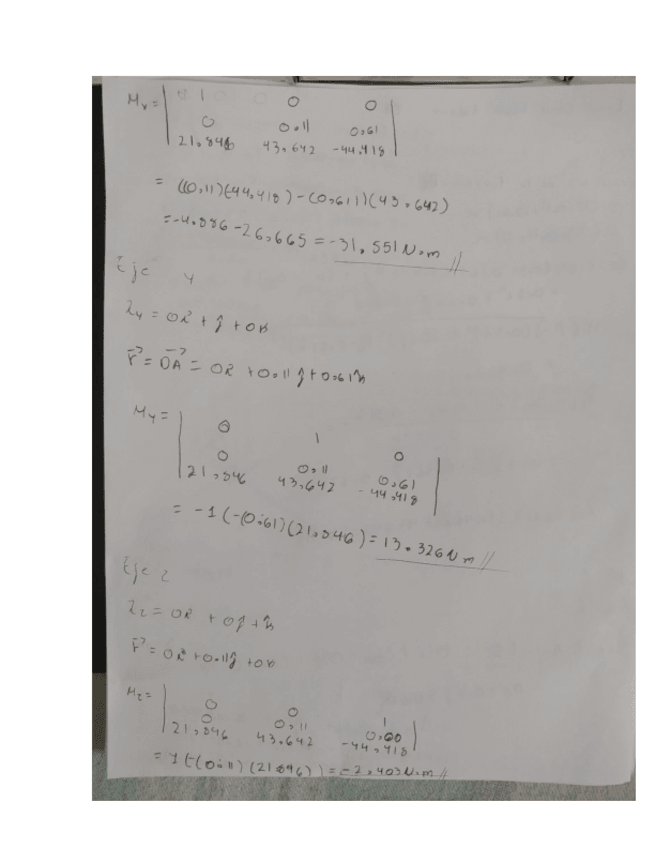 Mx = | 1 0 0 |
0 0.11 0.61
21.846 43.642 -44.418
= ((0.11)(44.418) - (0.611)(43.642)
= -4.886 - 26.665 = -31.551 N.m //
Eje y
λy = 0î + ĵ + 0k
r⃗ = OA⃗ = 0î + 0.11ĵ + 0.61k
My = | 0 1 0 |
0 0.11 0.61
21.846 43.642 -44.418
= -1(-(0.61)(21.846) = 13.326 N m //
Eje z
λz = 0î + 0ĵ + k
r⃗ = 0î + 0.11ĵ + 0k
Mz = | 0 0 1 |
0 0.11 0.00
21.846 43.642 -44.418
= 1(-(0.11)(21.846)) = -2.403 N.m //